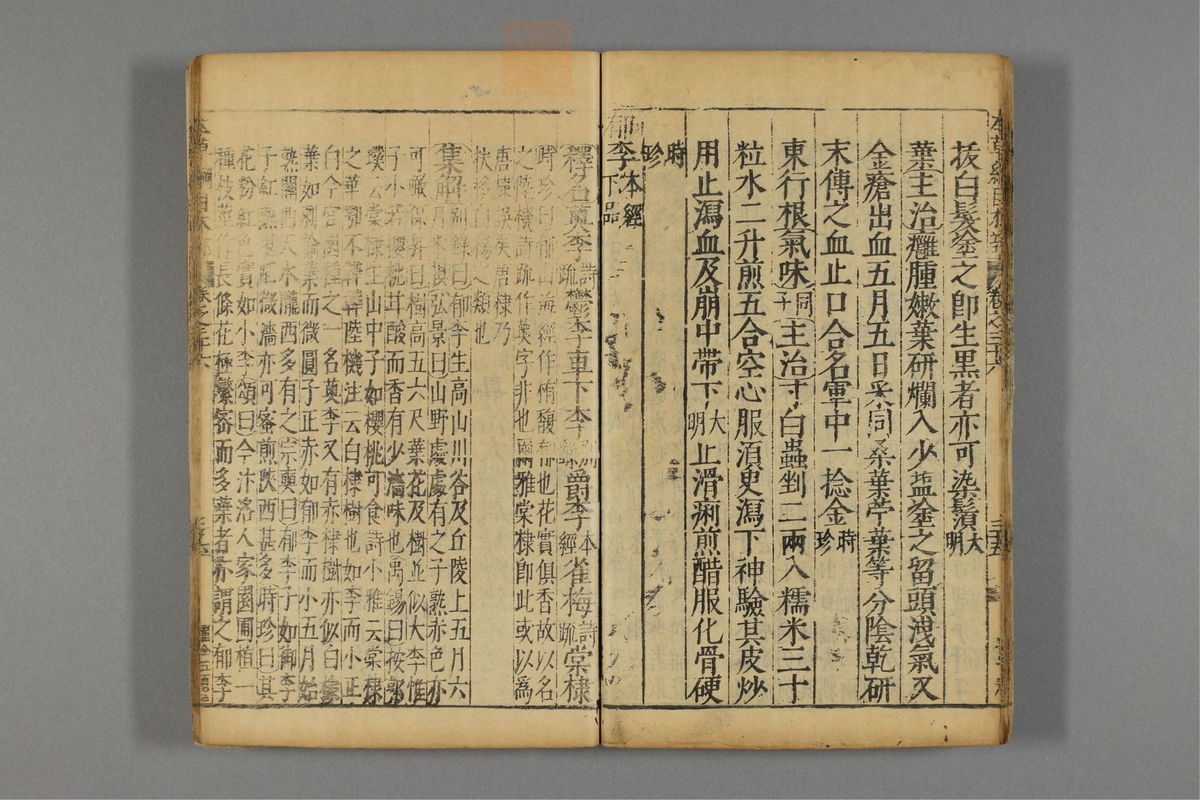 拔白鬚𡍼之卽生黑者亦可染鬚鬢大明
葉主治癰腫嫩葉研爛入少盐塗之留頭洩氣又
金瘡出血五月五日采同桑葉苧葉等分陰乾研
末傅之血止口合名軍中一捻金時珍
東行根氣味同子主治寸白蟲剉二兩入糯米三十
粒水二升煎五合空心服須臾瀉下神驗其皮炒
用止瀉血及崩中帶下大明止滑痢煎醋服化骨硬
時珍
郁李本經下品
釋名薁李詩疏鬱李車下李別錄爵李本經雀梅詩疏棠棣
時珍曰郁山海經作栯馥郁也花實俱香故以名
之陸機詩疏作薁字非也爾雅棠棣卽此或以爲
唐棣誤矣唐棣乃
扶栘白楊之類也
集解別錄曰郁李生高山川谷及丘陵上五月六
月采根弘景曰山野處處有之子熟赤色亦
可噉保昇曰樹高五六尺葉花及樹並似大李惟
子小若櫻桃甘酸而香有少濇味也禹錫曰按郭
璞云棠棣生山中子如櫻桃可食詩小雅云棠棣
之華鄂不韡韡陸機注云白棣樹也如李而小正
白今官園種之一名薁李又有赤棣樹亦似白棣
葉如刺榆葉而微圓子正赤如郁李而小五月始
熟關西天水隴西多有之宗奭曰郁李子如御李
子紅熟堪啖微濇亦可蜜煎陝西甚多時珍曰其
花粉紅色實如小李頌曰今汴洛人家園圃植一
種枝莖作長條花極繁密而多葉者亦謂之郁李